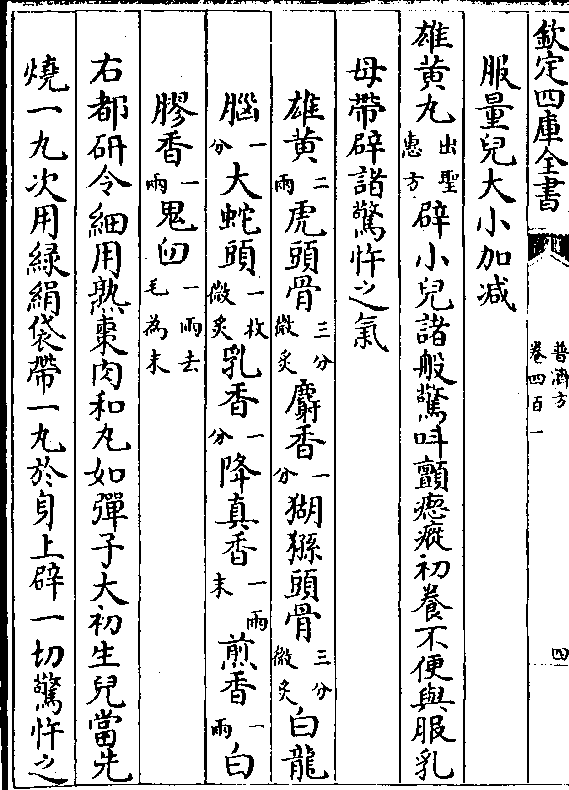 欽定四庫全書
普濟方
卷四百一
四
服量兒大小加减
雄黄丸出聖惠方辟小兒諸般驚呌顫瘛瘲初養不便與服乳
母帶辟諸驚忤之氣
雄黄二兩虎頭骨三分微炙麝香一分猢猻頭骨三分微炙白龍
腦一分大蛇頭一枚微炙乳香一分降真香一兩末煎香一兩白
膠香一兩鬼臼一兩去毛為末
右都研令細用熟棗肉和丸如彈子大初生兒當先
燒一丸次用緑絹袋帶一丸於身上辟一切驚忤之